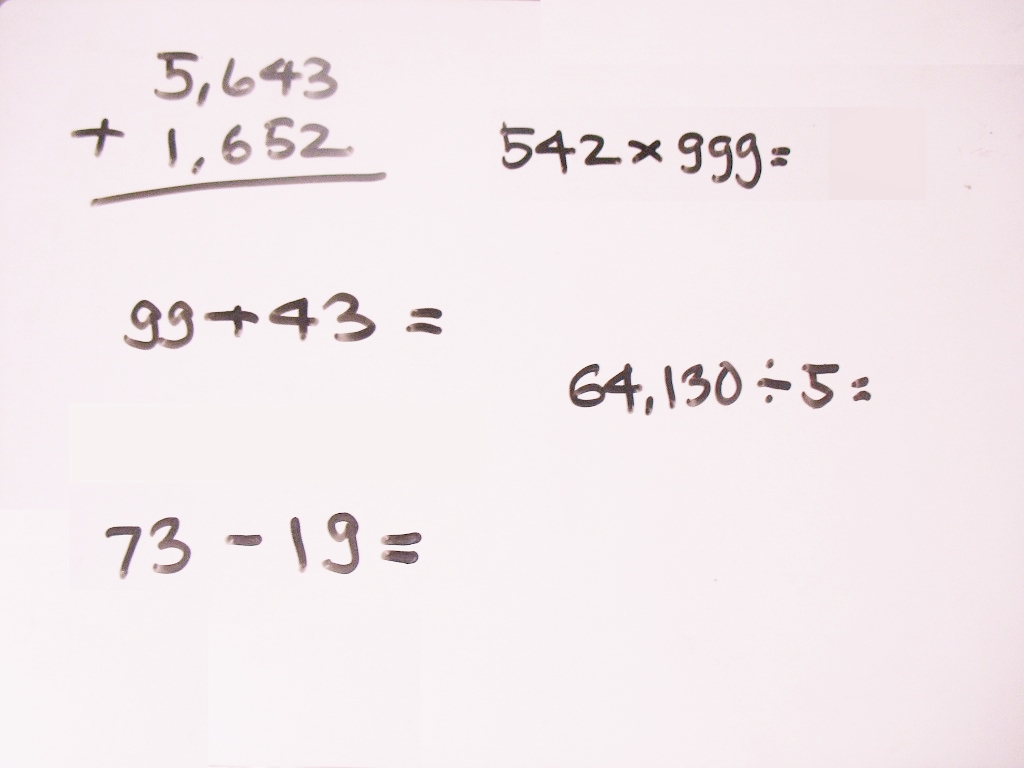 5,643
+ 1,652
542 × 999 =
99 + 43 =
64,130 ÷ 5 =
73 - 19 =